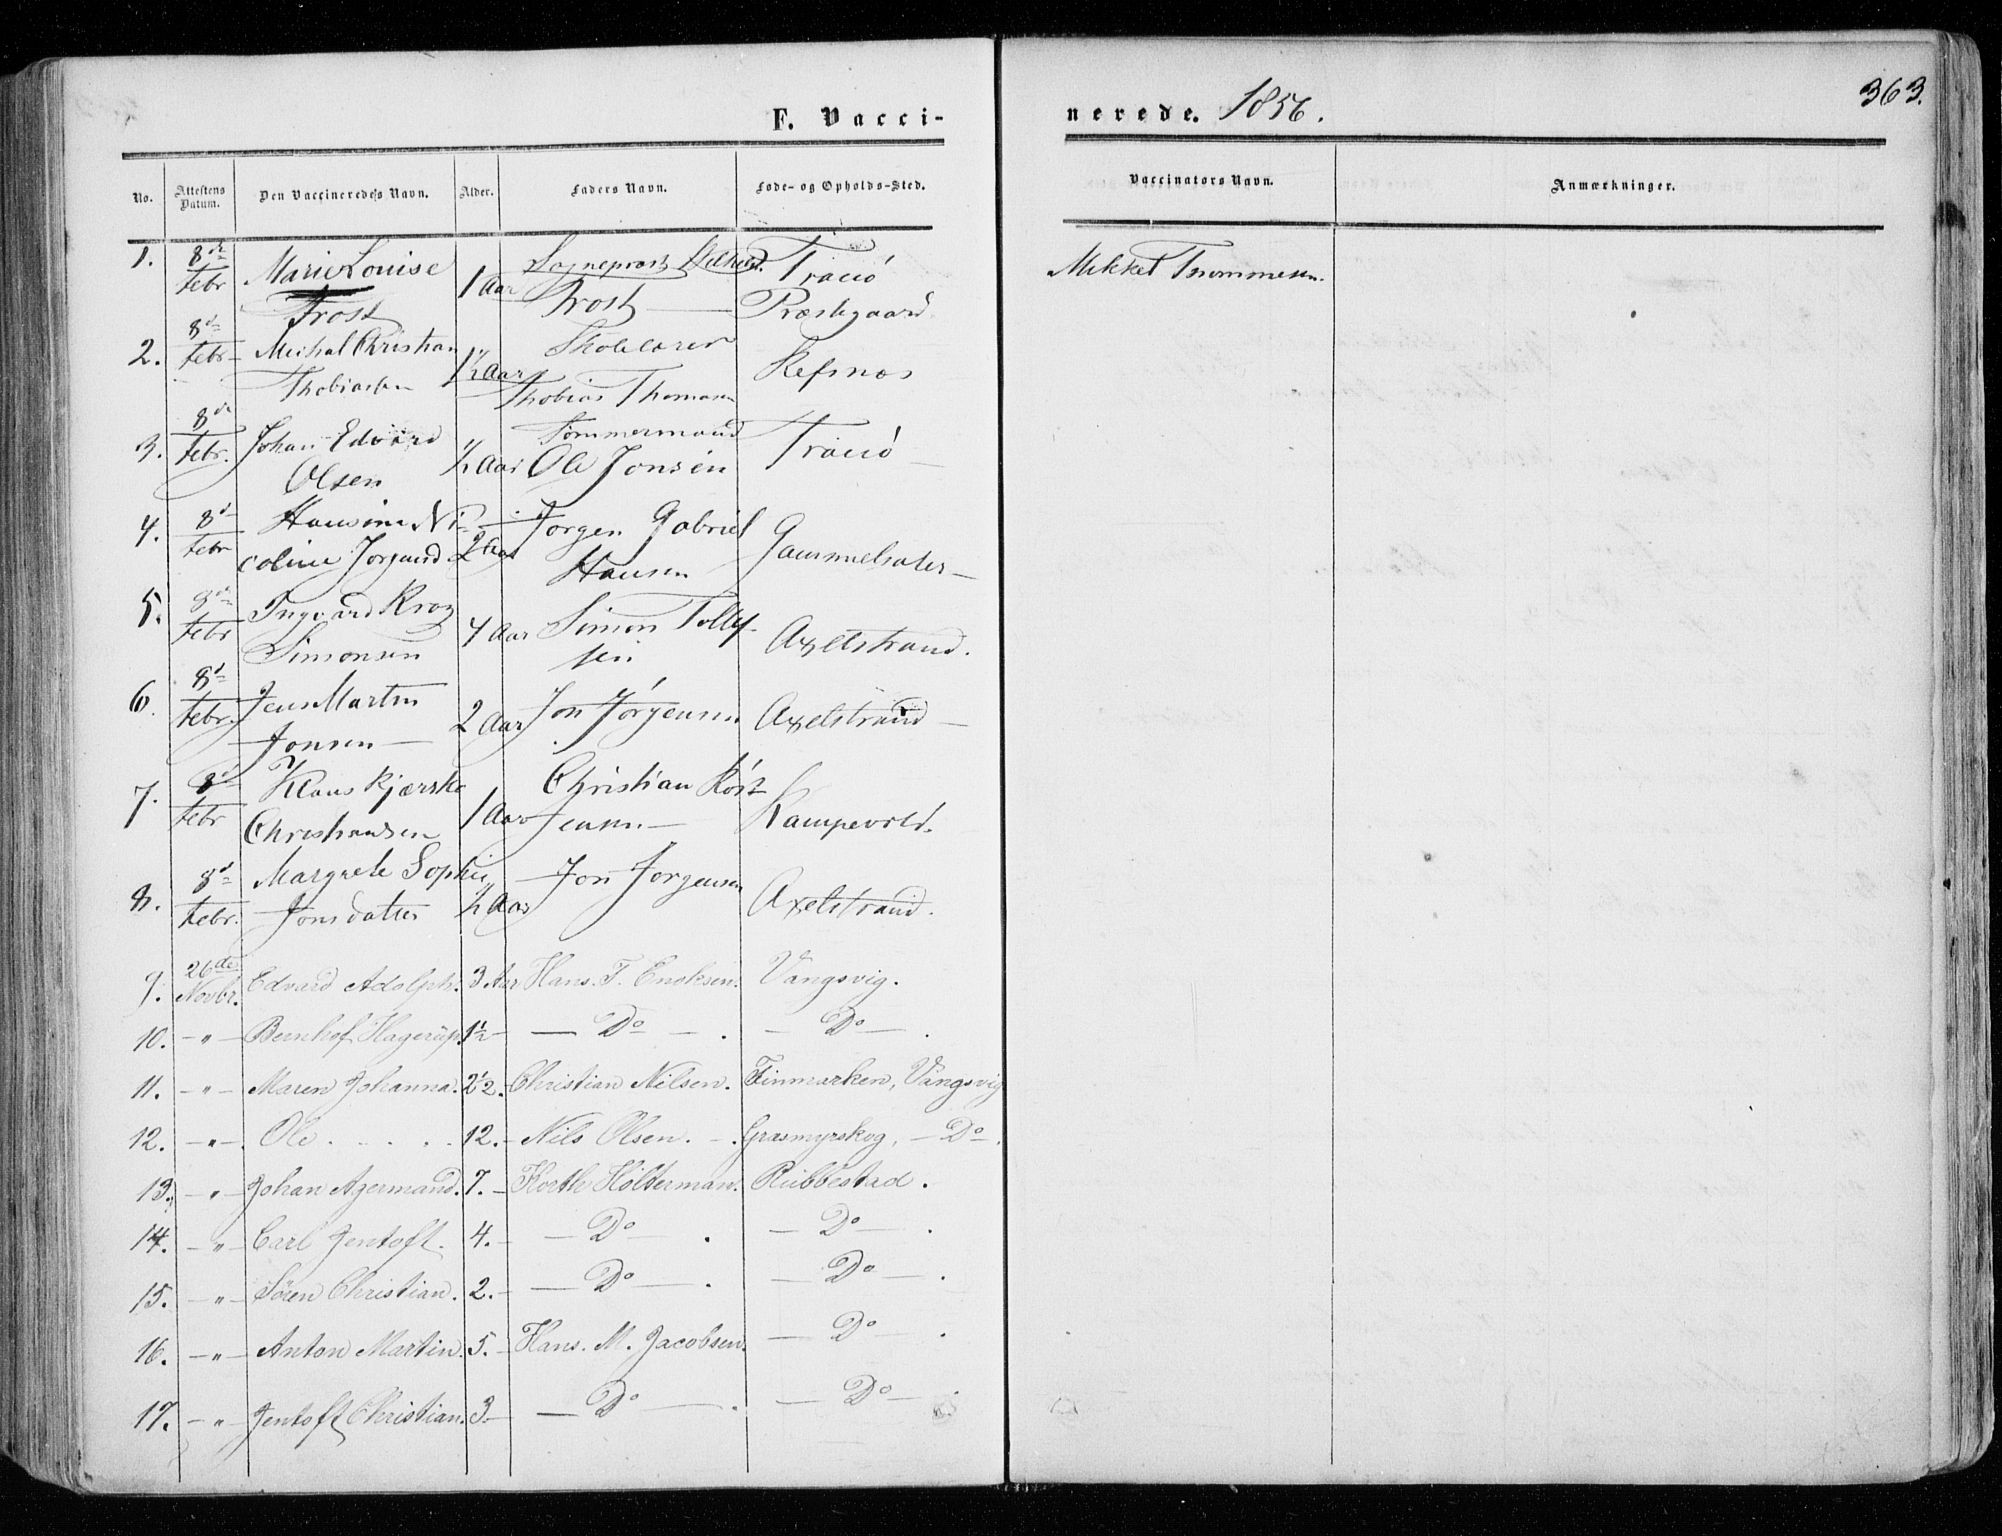 363.
F. Vacci-
nerede. 1856.
No.
Attestens Datum.
Den Vaccineredes Navn.
Alder.
Faders Navn.
Føde- og Opholds-Sted.
Vaccinators Navn.
Anmærkninger.
1. 8de Febr Marie Louise Frost 1 Aar Sogneprest Frost Tranö Præstegaard Mikkel Thommesen.
2. 8d Febr Michal Christian Thobiassen 1½ Aar Skolelærer Thobias Thomassen Refsnæs
3. 8de Febr. Johan Edvard Olsen ½ Aar Tømmermand Ole Jonsen Tranö
4. 8d Febr Hansine Nicoline Jørgensd. 2 Aar Jørgen Gabriel Hansen Gammelsæter
5. 8de Febr Ingvard Krog Simonsen 4 Aar Simon Tollefsen Axelstrand.
6. 8d Febr. Jens Martin Jonsen 2 Aar Jon Jørgensen Axelstrand
7. 8d Febr Klaus Kjærskó Christiansen 1 Aar Christian Röst Jensen Kampevold.
8. 8d Febr. Margrete Sophie Jonsdatter ½ Aar Jon Jørgensen Axelstrand.
9. 26de Novbr. Edvard Adolph. 3 Aar Hans. T. Enoksen. Vangsvig.
10. -„- Bernhof Hagerup. 1½ - — Do — . — Do — .
11. -„- Maren Johanna. 2½. - Christian Nilsen. Finmarken, Vangsvig
12. -„-. Ole . . . . . 12. - Nils Olsen. -. Græsmyrskog, — Do —.
13. -„- Johan Agermand. 7. - Holterman. Rubbestad.
14. -„- Carl Jentoft. 4. - — Do — . — Do — .
15. -„- Sören Christian. 2. - — Do — . — Do — .
16. -„- Anton Martin. 5. - Hans. M. Jacobsen. — Do — .
17. -„- Jentoft Christian. 3. - — Do — . — Do — .